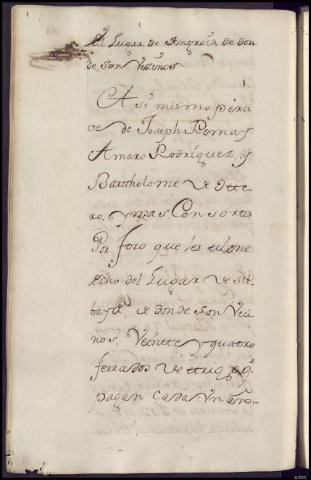 el Lugar de Angrois, de don
de son Vezinos
Asi mismo perci
ve de Joseph Pomas
Amaro Rodriguez, y
Bartholome de Otte
ro, y mas Consortes
Por foro que les
echo del Lugar de
de donde son Veci
nos, Veinte y quatro
ferrados de trigo q
pagan Cada Un año